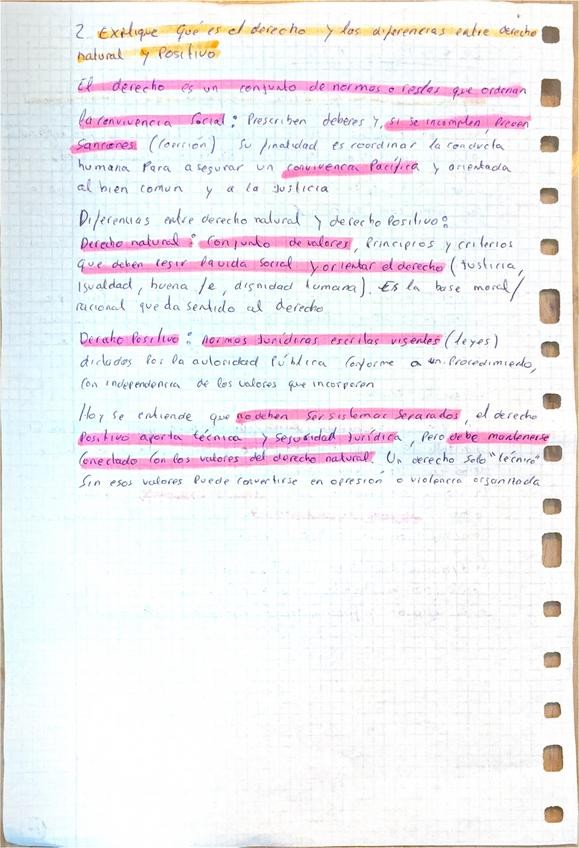 2. Explique Qué es el derecho y las diferencias entre derecho
natural y Positivo
El derecho es un conjunto de normas o reglas que ordenan
la convivencia social: Prescriben deberes y, si se incumplen, Preven
Sanciones (coerción). Su finalidad es coordinar la conducta
humana Para asegurar un convivencia Pacífica y orientada
al bien comun y a la Justicia
Diferencias entre derecho natural y derecho Positivo:
Derecho natural: Conjunto de valores, Principios y criterios
que deben regir la vida Social y orientar el derecho (Justicia,
Igualdad, buena fe, dignidad humana). Es la base moral/
racional que da sentido al derecho
Derecho Positivo: normas Jurídicas escritas vigentes (leyes)
dictadas Por la autoridad Pública Conforme a un Procedimiento,
Con independencia de los valores que incorporen
Hoy se entiende que no deben ser sistemas Separados, el derecho
Positivo aporta técnica y Seguridad Jurídica, Pero debe mantenerse
Conectado Con los valores del derecho natural. Un derecho Solo "técnico"
Sin esos valores Puede convertirse en opresión o violencia organizada